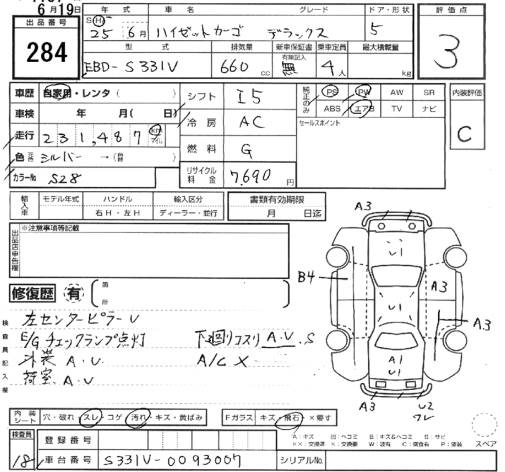 6月19日
出品番号
284
年式 車名 グレード ドア・形状 評価点
S H 25年 6月 ハイゼットカーゴ デラックス 5 3
型式 排気量 新車保証書 乗車定員 最大積載量
有無記入
EBD-S331V 660cc 無 4人 kg
車歴 自家用・レンタ( ) シフト I5 純正のみ PS PW AW SR 内装評価
ABS エアB TV ナビ
車検 年 月( 日) 冷房 AC セールスポイント C
走行 231,487 km マイル
色 シルバー → 燃料 G
カラーNo S28 リサイクル料金 7,690円
輸入車 モデル年式 ハンドル 輸入区分 書類有効期限
右H・左H ディーラー・並行 月 日迄
※注意事項等記載
A3
U1
B4 A3
U1 A3
修復歴 有 箇所
検査員記入欄
左センターピラーU
E/Gチェックランプ点灯 下廻りコスリ A.U.S
外装 A.U A/C X
荷室 A.U
A1
U1
A3 A3 U2
ワレ
内装シート 穴・破れ・スレ・コゲ 汚れ・キズ・黄ばみ Fガラス キズ・飛石・×要す
スペア
A:キズ U:ヘコミ B:キズ&ヘコミ S:サビ
検査員 登録番号
18 車台番号 S331V-0093007 シリアルNo.